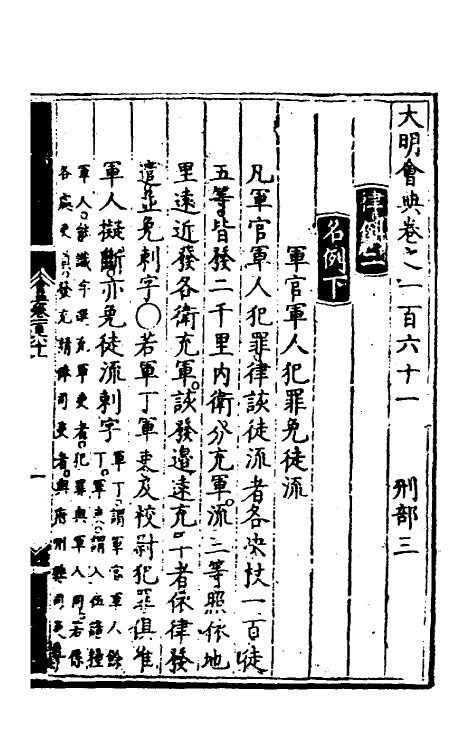 大明會典卷之一百六十一 刑部三
律例二
名例下
軍官軍人犯罪免徒流
凡軍官軍人犯罪律該徒流者各決杖一百徒
五等皆發二千里內衛分充軍流三等照依地
里遠近發各衛充軍該發邊遠充軍者依律發
遣並免刺字○若軍丁軍吏及校尉犯罪俱准
軍人擬斷亦免徒流刺字 軍丁謂軍官軍人餘丁軍吏謂入伍請糧
軍人能識字選充軍吏者犯罪與軍人同若係各處吏員發充請俸司吏者與府州縣司吏